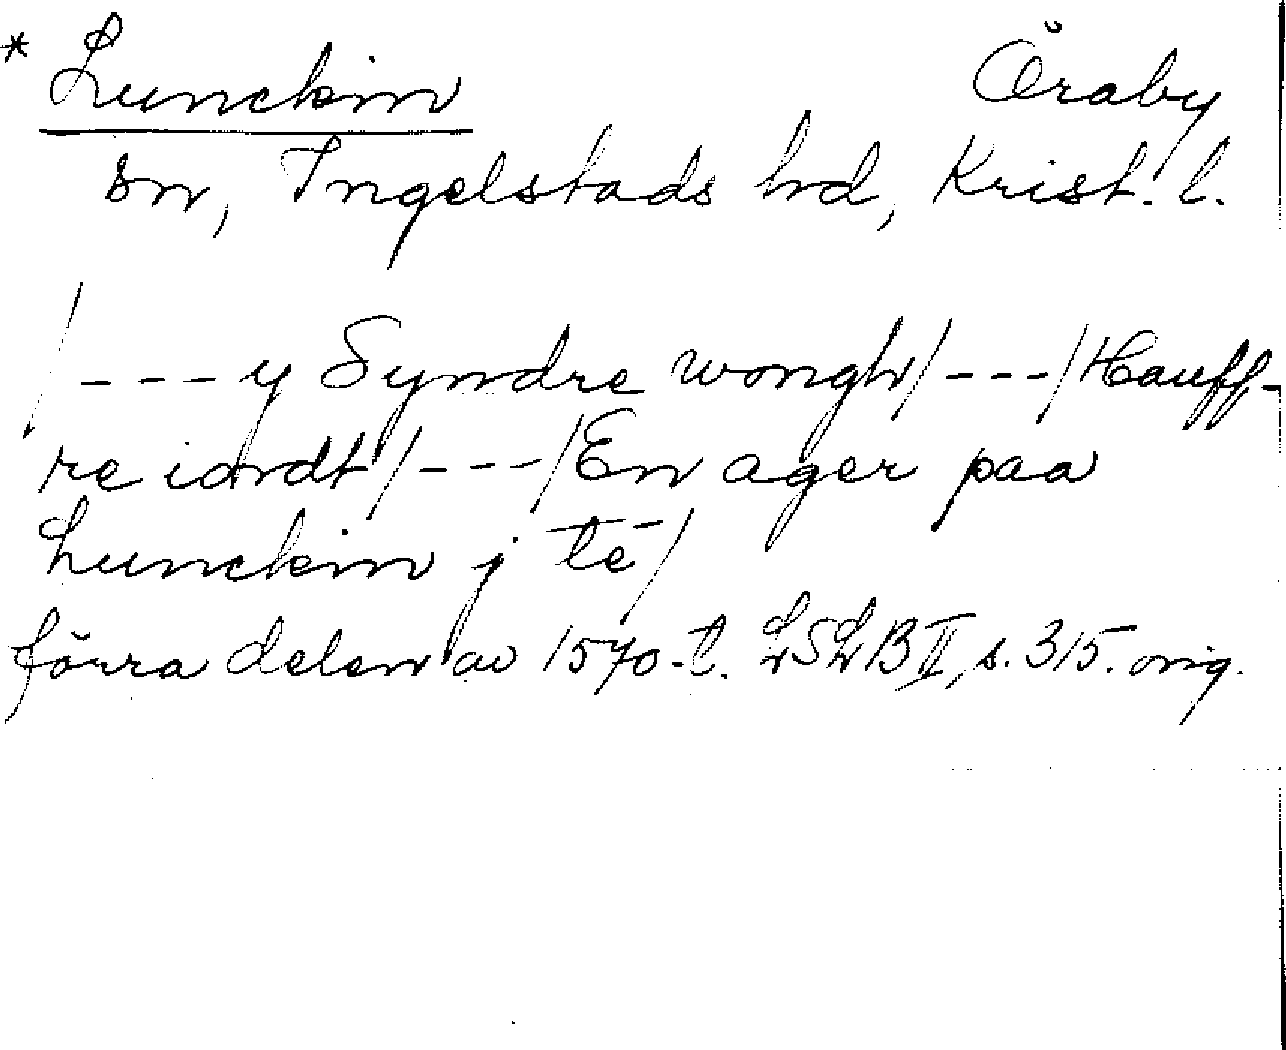 * Lunckim Öraby
sn, Ingelstads hd, Krist. l.
/---y Syndre wongh/---/Hauff-
re idrdt/---/En ager paa
Lunckim j te/
förra delen av 1570-t. LSLB II, s. 315. orig.